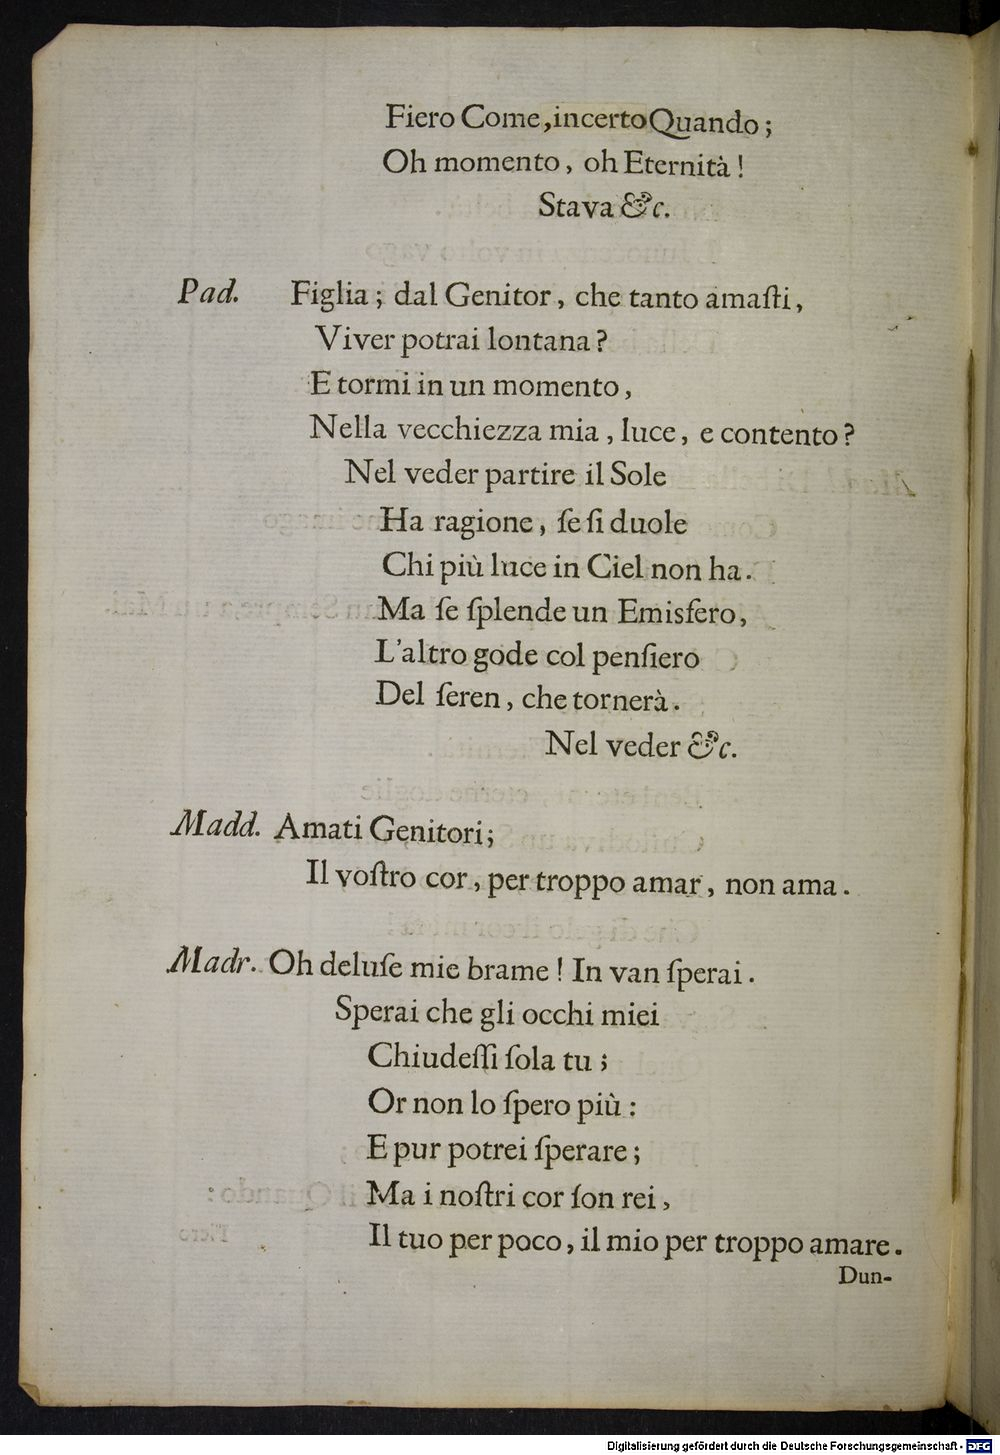 Fiero Come, incerto Quando;
Oh momento, oh Eternità!
Stava &c.
Pad. Figlia; dal Genitor, che tanto amaſti,
Viver potrai lontana?
E tormi in un momento,
Nella vecchiezza mia, luce, e contento?
Nel veder partire il Sole
Ha ragione, ſe ſi duole
Chi più luce in Ciel non ha.
Ma ſe ſplende un Emisfero,
L'altro gode col penſiero
Del ſeren, che tornerà.
Nel veder &c.
Madd. Amati Genitori;
Il voſtro cor, per troppo amar, non ama.
Madr. Oh deluſe mie brame! In van ſperai.
Sperai che gli occhi miei
Chiudeſſi ſola tu;
Or non lo ſpero più:
E pur potrei ſperare;
Ma i noſtri cor ſon rei,
Il tuo per poco, il mio per troppo amare.
Dun-
Digitalisierung gefördert durch die Deutsche Forschungsgemeinschaft - DFG